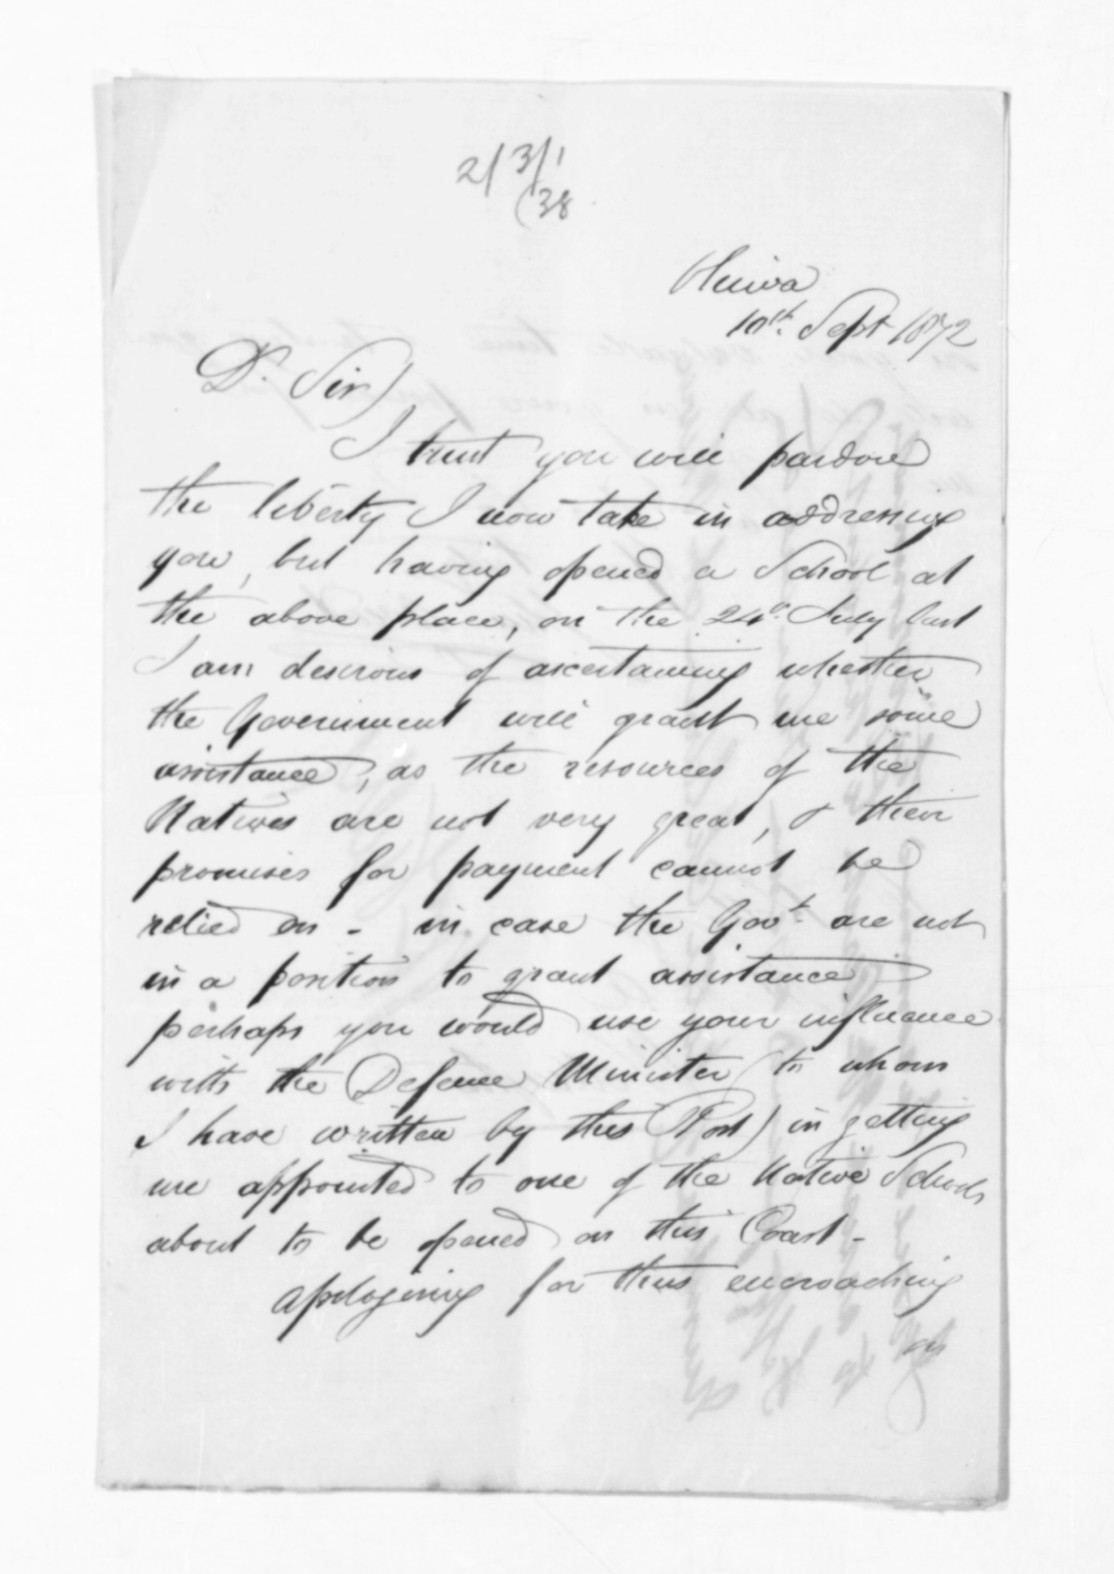 2/3/1
(38
10th. Sept 1872
Dr. Sir)
I trust you will pardon
the liberty I now take in addressing
you, but having opened a School at
the above place, on the 24th. July last
I am desirous of ascertaining whether
the Government will grant me some
assistance, as the resources of the
Natives are not very great, & their
promises for payment cannot be
relied on - in case the Govt. are not
in a position to grant assistance
perhaps you would use your influence
with the Defence Minister (to whom
I have written by this Post) in getting
me appointed to one of the Native Schools
about to be opened on this Coast -
Apologising for thus encroaching
on